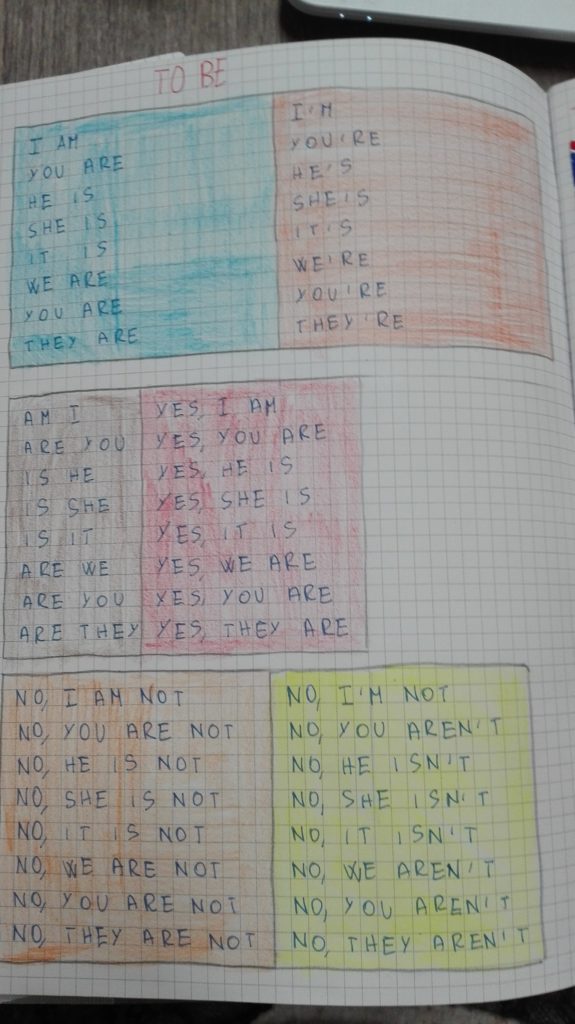 TO BE
I AM
YOU ARE
HE IS
SHE IS
IT IS
WE ARE
YOU ARE
THEY ARE
I'M
YOU'RE
HE'S
SHE'S
IT'S
WE'RE
YOU'RE
THEY'RE
AM I
ARE YOU
IS HE
IS SHE
IS IT
ARE WE
ARE YOU
ARE THEY
YES, I AM
YES, YOU ARE
YES, HE IS
YES, SHE IS
YES, IT IS
YES, WE ARE
YES, YOU ARE
YES, THEY ARE
NO, I AM NOT
NO, YOU ARE NOT
NO, HE IS NOT
NO, SHE IS NOT
NO, IT IS NOT
NO, WE ARE NOT
NO, YOU ARE NOT
NO, THEY ARE NOT
NO, I'M NOT
NO, YOU AREN'T
NO, HE ISN'T
NO, SHE ISN'T
NO, IT ISN'T
NO, WE AREN'T
NO, YOU AREN'T
NO, THEY AREN'T